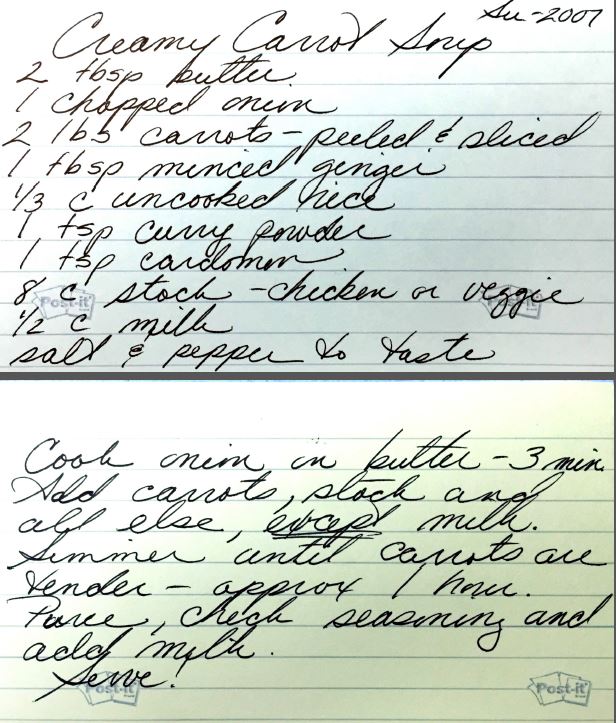 Su-2007
Creamy Carrot Soup
2 tbsp butter
1 chopped onion
2 lbs carrots - peeled & sliced
1 tbsp minced ginger
1/3 c uncooked rice
1 tsp curry powder
1 tsp cardomon
8 c stock - chicken or veggie
1/2 c milk
salt & pepper to taste
Post-it Post-it
Cook onion in butter - 3 min.
Add carrots, stock and
all else, except milk.
Simmer until carrots are
tender - approx 1 hour.
Puree, check seasoning and
add milk.
Serve!
Post-it Post-it